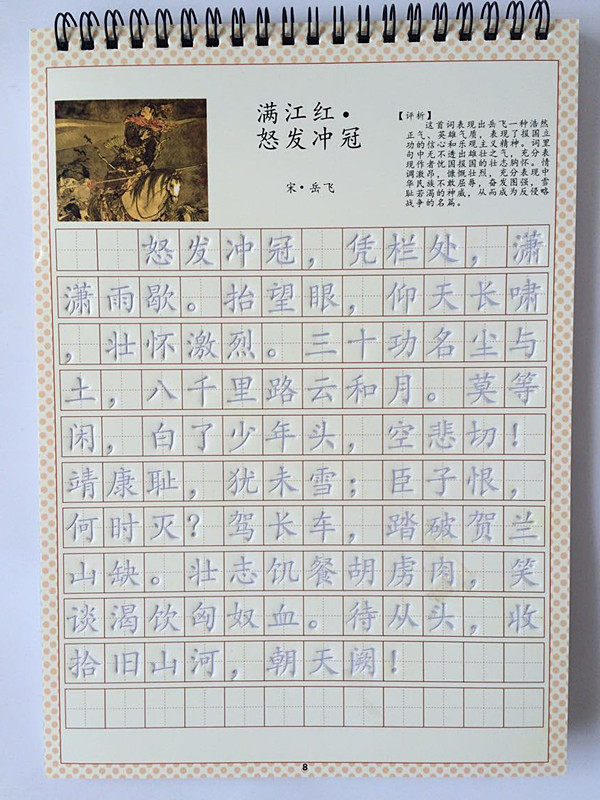 满江红·
怒发冲冠
宋·岳飞
【评析】
这首词表现出岳飞一种浩然
正气、英雄气质，表现了报国立
功的信心和乐观主义精神。词里
句中无不透出雄壮之气，充分表
现作者忧国报国的壮态胸怀。情
调激昂，慷慨壮烈，充分表现中
华民族不敢屈辱，奋发图强，雪
耻若渴的神威，从而成为反侵略
战争的名篇。
怒发冲冠，凭栏处，潇
潇雨歇。抬望眼，仰天长啸
，壮怀激烈。三十功名尘与
土，八千里路云和月。莫等
闲，白了少年头，空悲切！
靖康耻，犹未雪；臣子恨，
何时灭？驾长车，踏破贺兰
山缺。壮志饥餐胡虏肉，笑
谈渴饮匈奴血。待从头，收
拾旧山河，朝天阙！
8